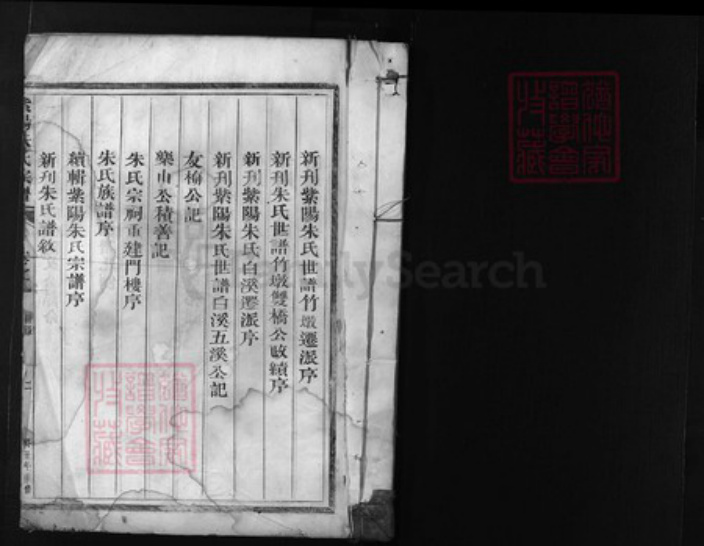 新刋紫陽朱氏世譜竹墩遷派序
新刋朱氏世譜竹墩雙橋公政績序
新刋紫陽朱氏白溪遷派序
新刋紫陽朱氏世譜白溪五溪公記
友梅公記
樂山公積善記
朱氏宗祠重建門樓序
朱氏族譜序
續輯紫陽朱氏宗譜序
新刋朱氏譜敘
FamilySearch